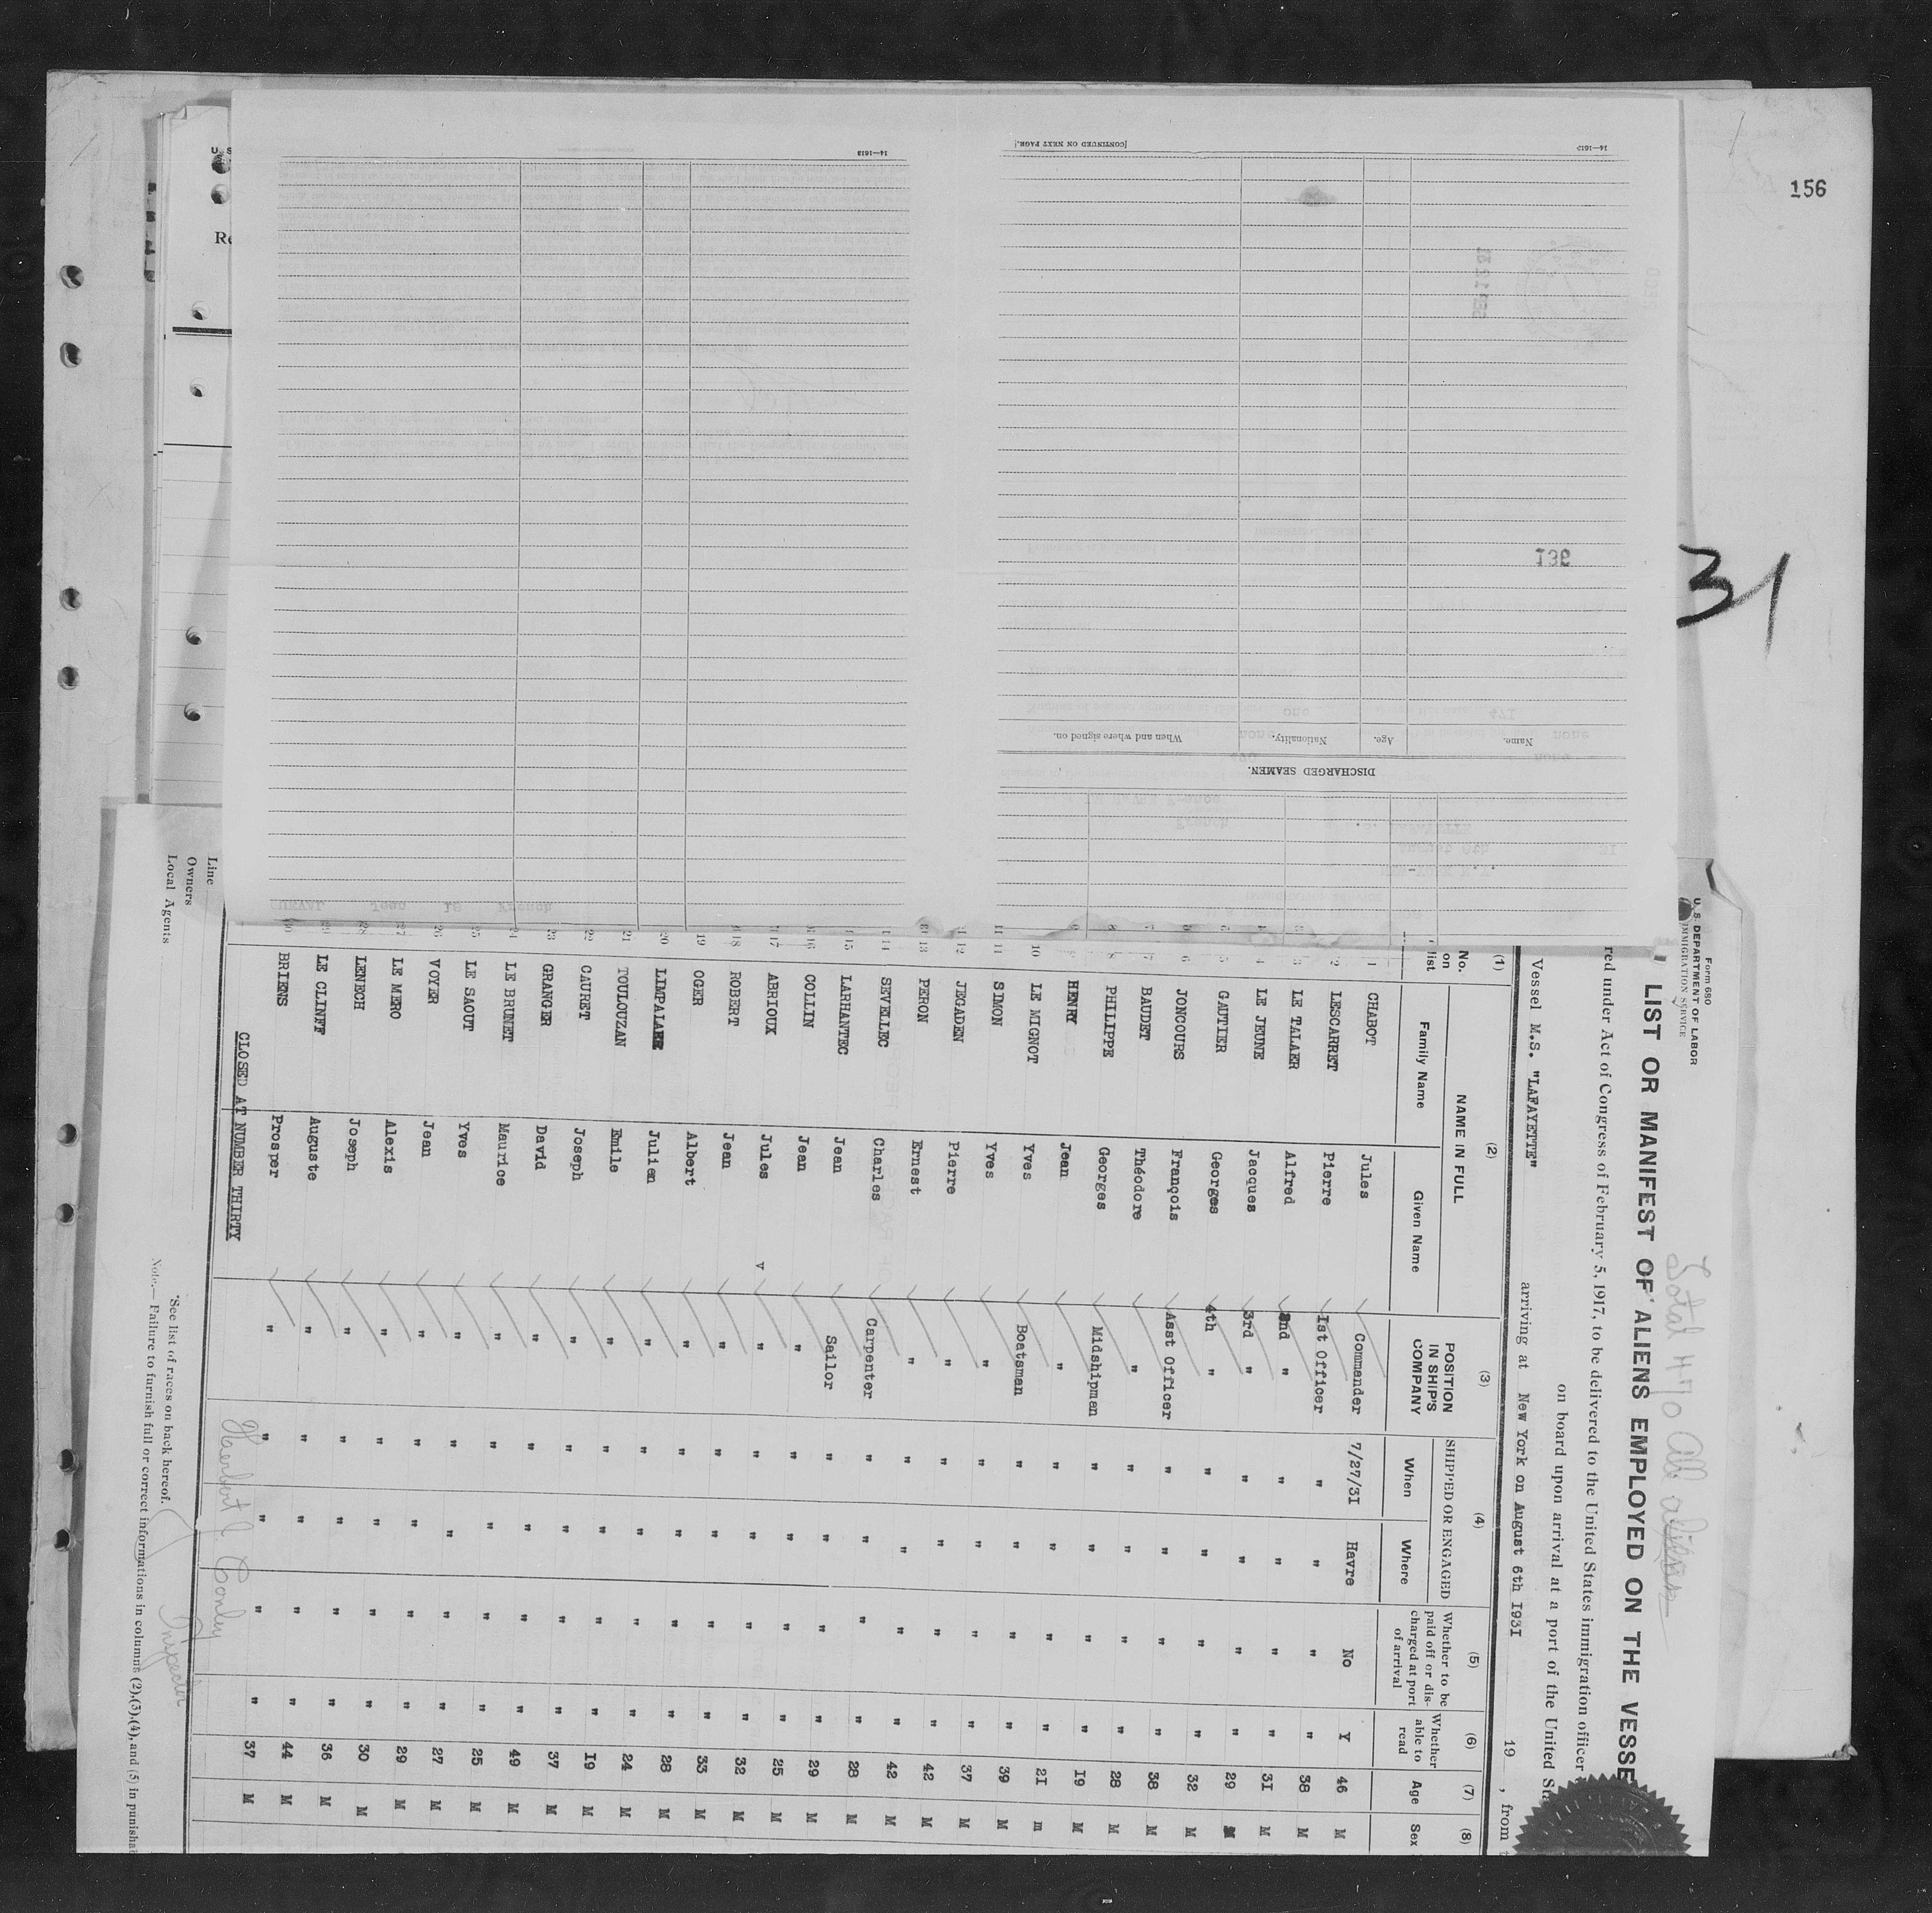 156
31
14—1613
[CONTINUED ON NEXT PAGE.]
14—1613
DISCHARGED SEAMEN.
Name. Age. Nationality. When and where signed on.
136
Form 680
U. S. DEPARTMENT OF LABOR
IMMIGRATION SERVICE
Total 470 all aliens
LIST OR MANIFEST OF ALIENS EMPLOYED ON THE VESSE
red under Act of Congress of February 5, 1917, to be delivered to the United States immigration officer
on board upon arrival at a port of the United St
Vessel M.S. "LAFAYETTE" arriving at New York on August 6th I93I 19 , from
(1) (2) (3) (4) (5) (6) (7) (8)
No. on list NAME IN FULL Family Name Given Name POSITION IN SHIP'S COMPANY SHIPPED OR ENGAGED When Where Whether to be paid off or discharged at port of arrival Whether able to read Age Sex
1 CHABOT Jules Commander 7/27/3I Havre No Y 46 M
2 LESCARRET Pierre Ist Officer " " " " 38 M
3 LE TALAER Alfred 2nd " " " " " 3I M
4 LE JEUNE Jacques 3rd " " " " " 29 M
5 GAUTIER Georges 4th " " " " " 32 M
6 JONCOURS François Asst Officer " " " " 38 M
7 BAUDET Théodore " " " " " 28 M
8 PHILIPPE Georges Midshipman " " " " I9 M
9 HENRY Jean " " " " " 2I m
10 LE MIGNOT Yves Boatsman " " " " 39 M
11 SIMON Yves " " " " " 37 M
12 JEGADEN Pierre " " " " " 42 M
13 PERON Ernest " " " " " 42 M
14 SEVELLEC Charles Carpenter " " " " 28 M
15 LARHANTEC Jean Sailor " " " " 29 M
16 COLLIN Jean " " " " " 25 M
17 ABRIOUX Jules " " " " " 32 M
18 ROBERT Jean " " " " " 33 M
19 OGER Albert " " " " " 28 M
20 LIMPALAER Julien " " " " " 24 M
21 TOULOUZAN Emile " " " " " I9 M
22 CAURET Joseph " " " " " 37 M
23 GRANGER David " " " " " 49 M
24 LE BRUNET Maurice " " " " " 25 M
25 LE SAOUT Yves " " " " " 27 M
26 VOYER Jean " " " " " 29 M
27 LE MERO Alexis " " " " " 30 M
28 LENECH Joseph " " " " " 36 M
29 LE CLINFF Auguste " " " " " 44 M
30 BRIENS Prosper " " " " " 37 M
CLOSED AT NUMBER THIRTY
Herbert Conley
Inspector
Line
Owners
Local Agents
*See list of races on back hereof.
Note.— Failure to furnish full or correct informations in columns (2),(3),(4), and (5) is punishab